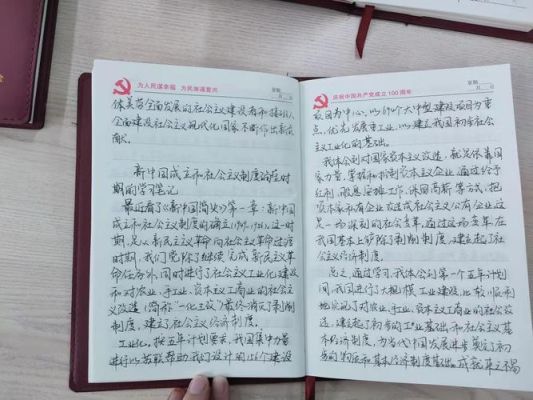 为人民谋幸福 为民族谋复兴
星期
月 日
体美劳全面发展的社会主义建设者和接班人
全面建设社会主义现代化国家不断作出新贡
献。
新中国成立和社会主义制度确立时
期的学习笔记
最近看了《新中国简史》第一章:新中国
成立和社会主义制度的确立(1949-1956),这一时
期,是从新民主主义革命向社会主义革命过渡
时期,我们党除了继续完成新民主主义革
命任务外,同时进行了社会主义工业化建设
和对农业、手工业、资本主义工商业的社会主
义改造(简称"一化三改")最终消灭了剥削
制度,建立了社会主义经济制度。
工业化,按五年计划要求,我国集中力量
进行以苏联帮助我们设计的156个建设
庆祝中国共产党成立100周年
星期
月 日
项目为中心,以694个大中型建设项目为重
点,优先发展重工业,以建立我国初步社会
主义工业化的基础。
我体会到对国家资本主义改造,就是依靠国
家力量,掌握和控制资本主义企业,通过给予
红利、股息安排工作、保留高薪等方式,把
资本家私有企业改造成社会主义公有企业,这
是一场深刻的社会变革,通过这场变革在
我国基本上铲除了剥削制度,建立起了社
会主义经济制度。
总之,通过学习,我体会到第一个五年计划
间,我国进行了大规模工业建设,比较顺利
地实现了对农业、手工业、资本主义工商业的社会主义改
造,建立起了初步的工业基础和社会主义基
本经济制度,为当代中国发展进步奠定了初
步的物质和基本经济制度基础。成就来之不易